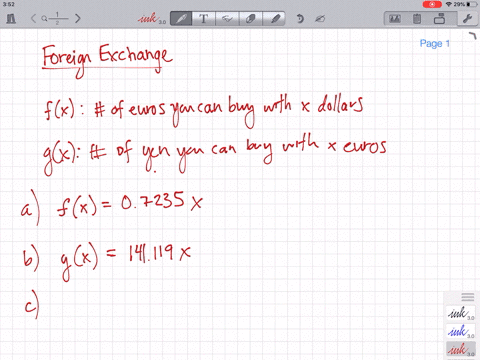 3:52
29%
1/2
ink 3.0
T
Page 1
Foreign Exchange
f(x): # of euros you can buy with x dollars
g(x): # of yen you can buy with x euros
a) f(x) = 0.7235 x
b) g(x) = 141.119 x
c)
ink 3.0
ink 3.0
ink 3.0